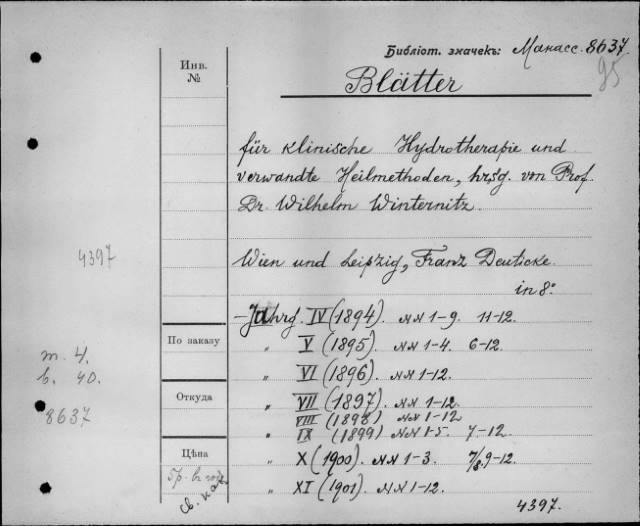 Библіот. значекъ: Манасс. 8637.
95
Инв.
№
Blätter
für klinische Hydrotherapie und
verwandte Heilmethoden, hrsg. von Prof.
Dr. Wilhelm Winternitz.
4397
Wien und Leipzig, Franz Deuticke.
in 8°.
Jahrg. IV (1894). №№ 1-9. 11-12.
По заказу
„ V (1895). №№ 1-4. 6-12.
т. 4.
„ VI (1896). №№ 1-12.
в. 40.
Откуда
„ VII (1897). №№ 1-12.
8637
VIII (1898) №№ 1-12
„ IX (1899) №№ 1-5. 7-12.
Цѣна
„ X (1900). №№ 1-3. 7/8. 9-12.
Гр. в
св. кат.
„ XI (1901). №№ 1-12.
4397.